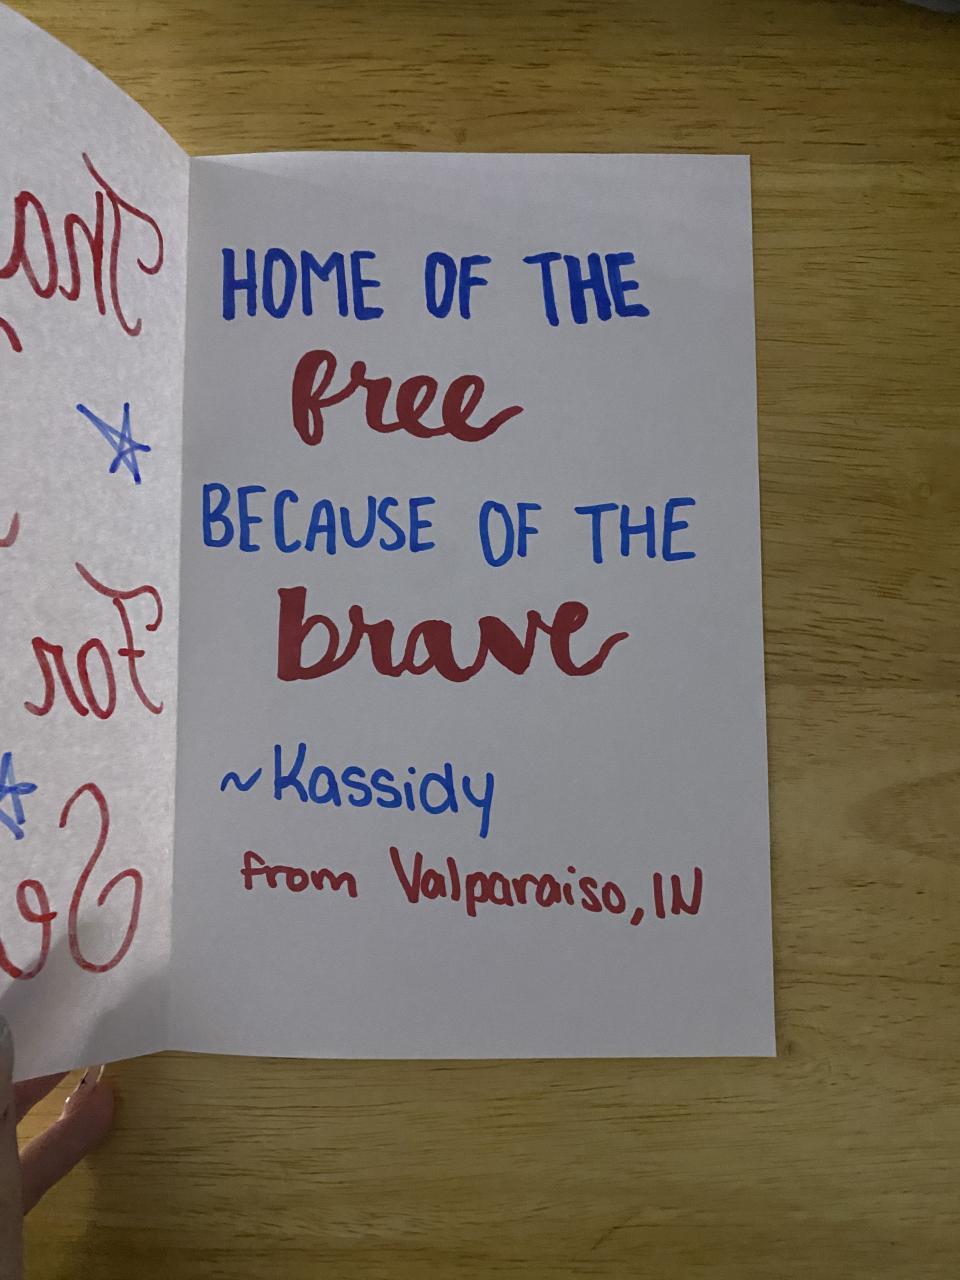 HOME OF THE
free
BECAUSE OF THE
brave
~Kassidy
from Valparaiso, IN
For